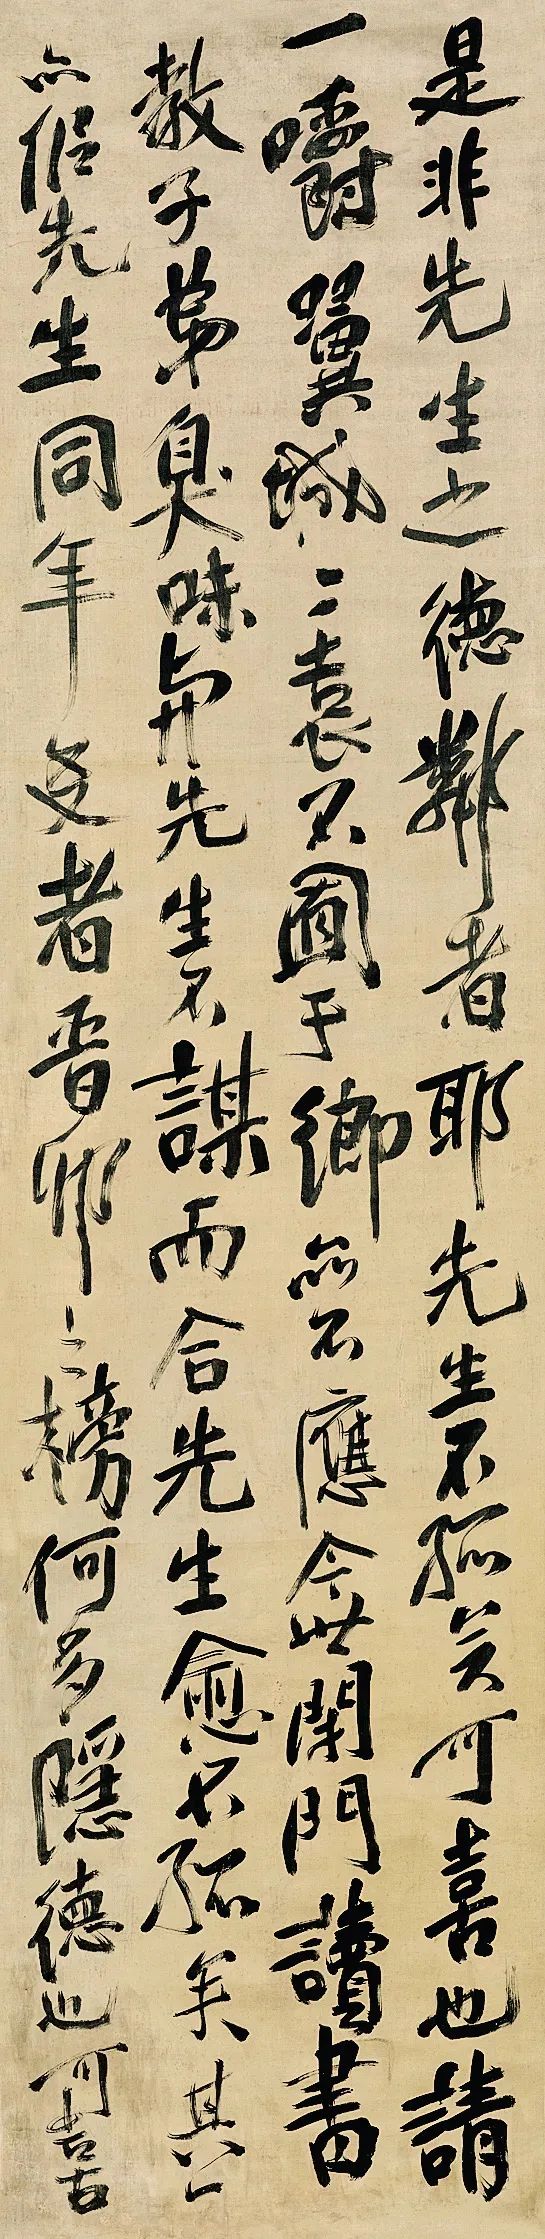 是非先生之德鄰者耶先生不孤矣可喜也請
一嚼翼城二袁不圃于鄉亦不應今世閑門讀書
教子弟臭味與先生不謀而合先生愈不孤矣其一
亦侶先生同年友者晉卯之榜何多隱德也可喜